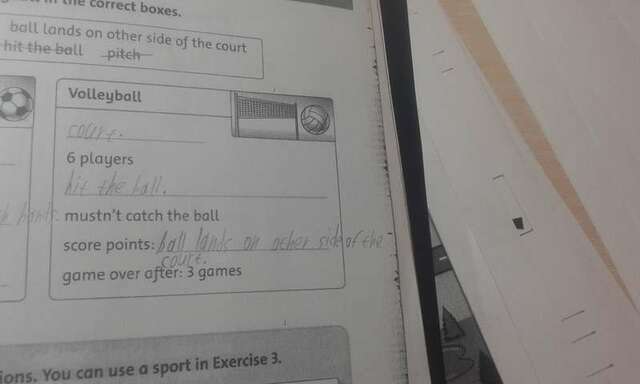 in the correct boxes.
ball lands on other side of the court
hit the ball pitch
Volleyball
court.
6 players
hit the ball.
mustn't catch the ball
score points: ball lands on other side of the
court.
game over after: 3 games
ions. You can use a sport in Exercise 3.